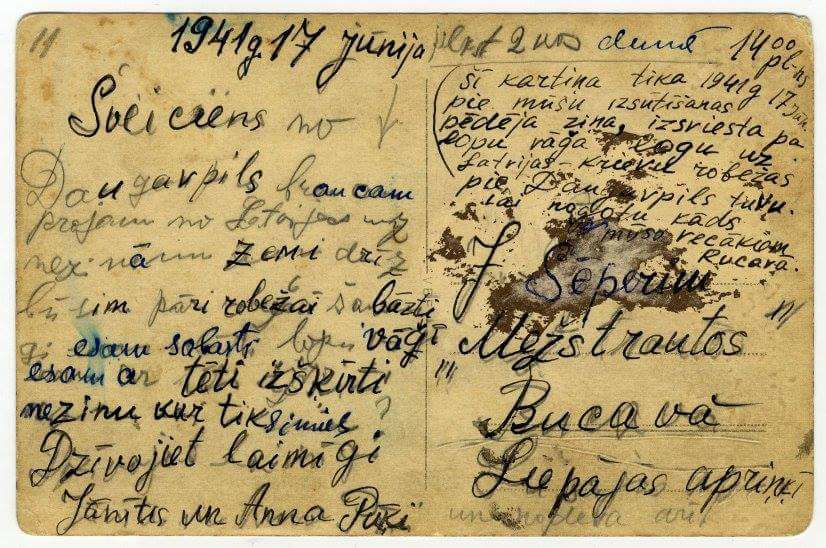 11
1941 g 17 jūnija plkst 2 nos dienā 14 00 pl-ns
Sveiciens no
Daugavpils braucam
projam no Latvijas uz
nezināmu zemi drīz
būsim pāri robežai sabāzti
esam sabāsti lopu vāģī
esam ar tēti izšķirti
nezinu kur tiksimies ?
Dzīvojiet laimīgi
Jānītis un Anna Pūķi
šī kartiņa tika 1941 g 17 jūn.
pie mūsu izsūtīšanas
pēdējā ziņa, izsviesta pa
lopu vāģa logu uz
Latvijas-Krievu robežas
pie Daugavpils tuvu.
lai nodotu kāds
mūsu vecākiem
Rucavā.
J Sēperim
"Mežstrautos"
Bucavā
Liepājas apriņķī